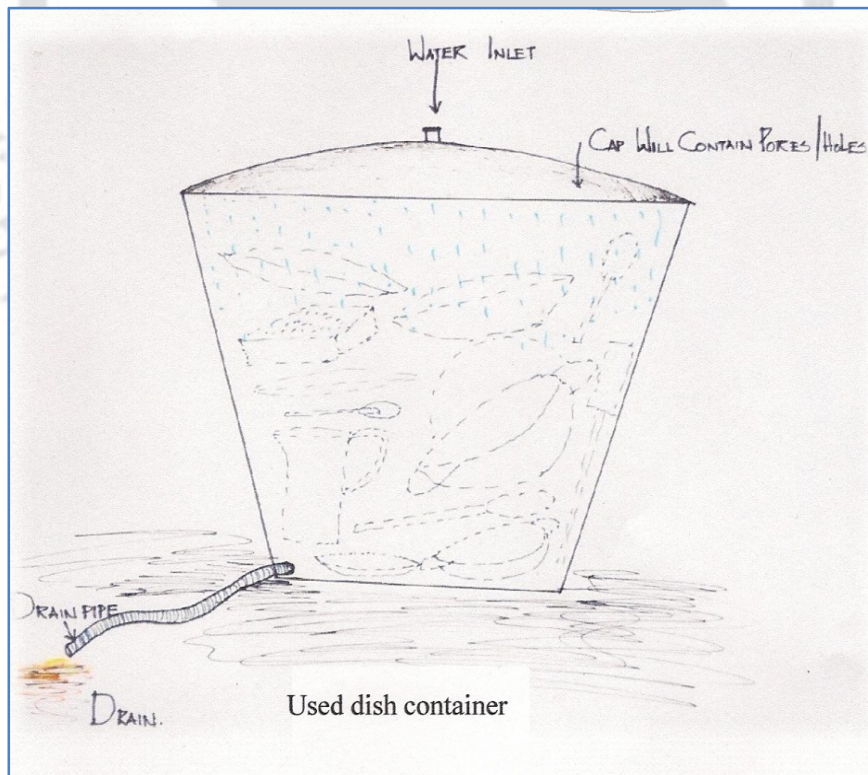 WATER INLET
CAP WILL CONTAIN PORES/HOLES
DRAIN PIPE
DRAIN.
Used dish container